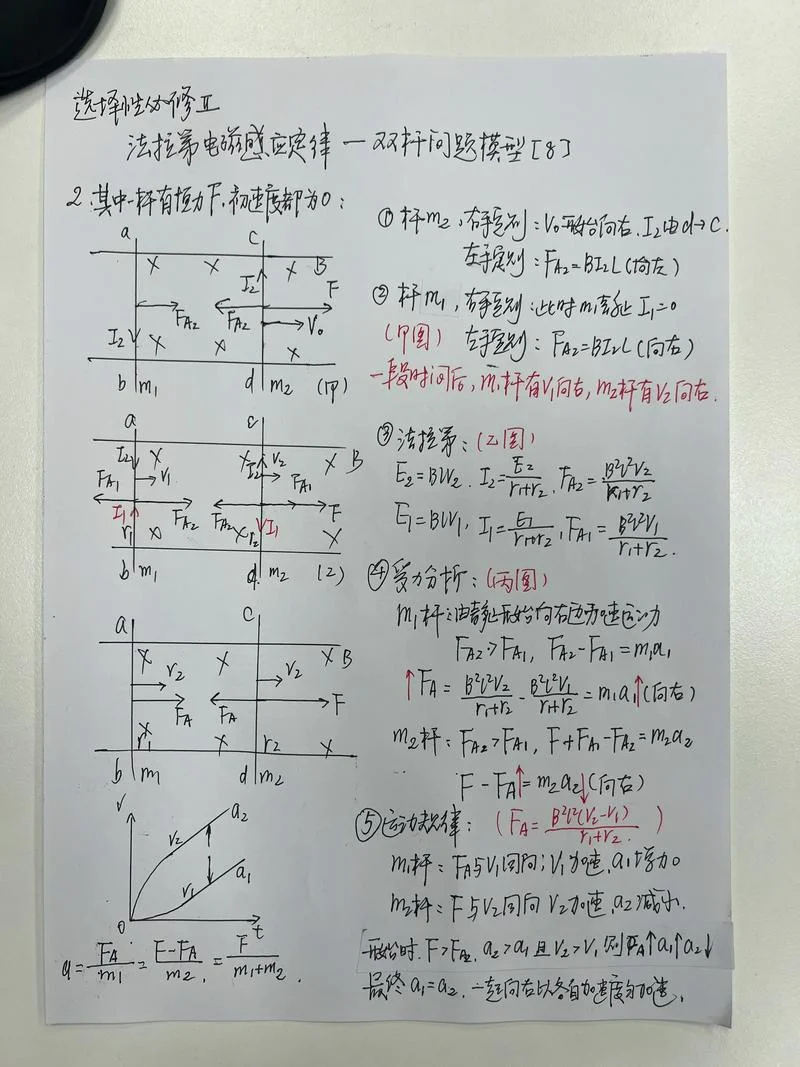 选择性必修Ⅱ
法拉第电磁感应定律—双杆问题模型[8]
2.其中一杆有恒力F,初速度都为0:
a c
B
I₂ F
F_A2 F_A2 V₀
I₂
b m₁ d m₂ (甲)
a c
I₂ I₂ V₂ B
F_A1 V₁ F_A1
F_A2 F_A2 F
I₁ r₁ r₂ I₁
b m₁ d m₂ (乙)
a c
B
V₂ V₂
F_A F_A F
r₁ r₂
b m₁ d m₂
V
V₂ a₂
V₁ a₁
0 t
a=F_A/m₁=F-F_A/m₂=F/m₁+m₂.
①杆m₂,右手定则:V₀开始向右,I₂由d→c.
左手定则:F_A2=BI₂L(向左)
②杆m₁,右手定则:此时m₁静止I₁=0
(甲图) 左手定则:F_A2=BI₂L(向右)
一段时间后,m₁杆有V₁向右,m₂杆有V₂向右.
③法拉第:(乙图)
E₂=BLV₂. I₂=E₂/r₁+r₂, F_A2=B²l²V₂/r₁+r₂
E₁=BLV₁, I₁=E₁/r₁+r₂, F_A1=B²l²V₁/r₁+r₂.
④受力分析:(丙图)
m₁杆:由静止开始向右边加速运动
F_A2>F_A1, F_A2-F_A1=m₁a₁
↑F_A=B²l²V₂/r₁+r₂-B²l²V₁/r₁+r₂=m₁a₁↑(向右)
m₂杆:F_A2>F_A1, F+F_A1-F_A2=m₂a₂
F-F_A↑=m₂a₂↓(向右)
⑤运动规律:(F_A=B²l²(V₂-V₁)/r₁+r₂.)
m₁杆:F_A与V₁同向;V₁加速,a₁增加
m₂杆:F与V₂同向 V₂加速,a₂减小.
开始时.F>F_A2, a₂>a₁且V₂>V₁则F_A↑a₁↑a₂↓
最终a₁=a₂.一起向右以各自加速度匀加速.